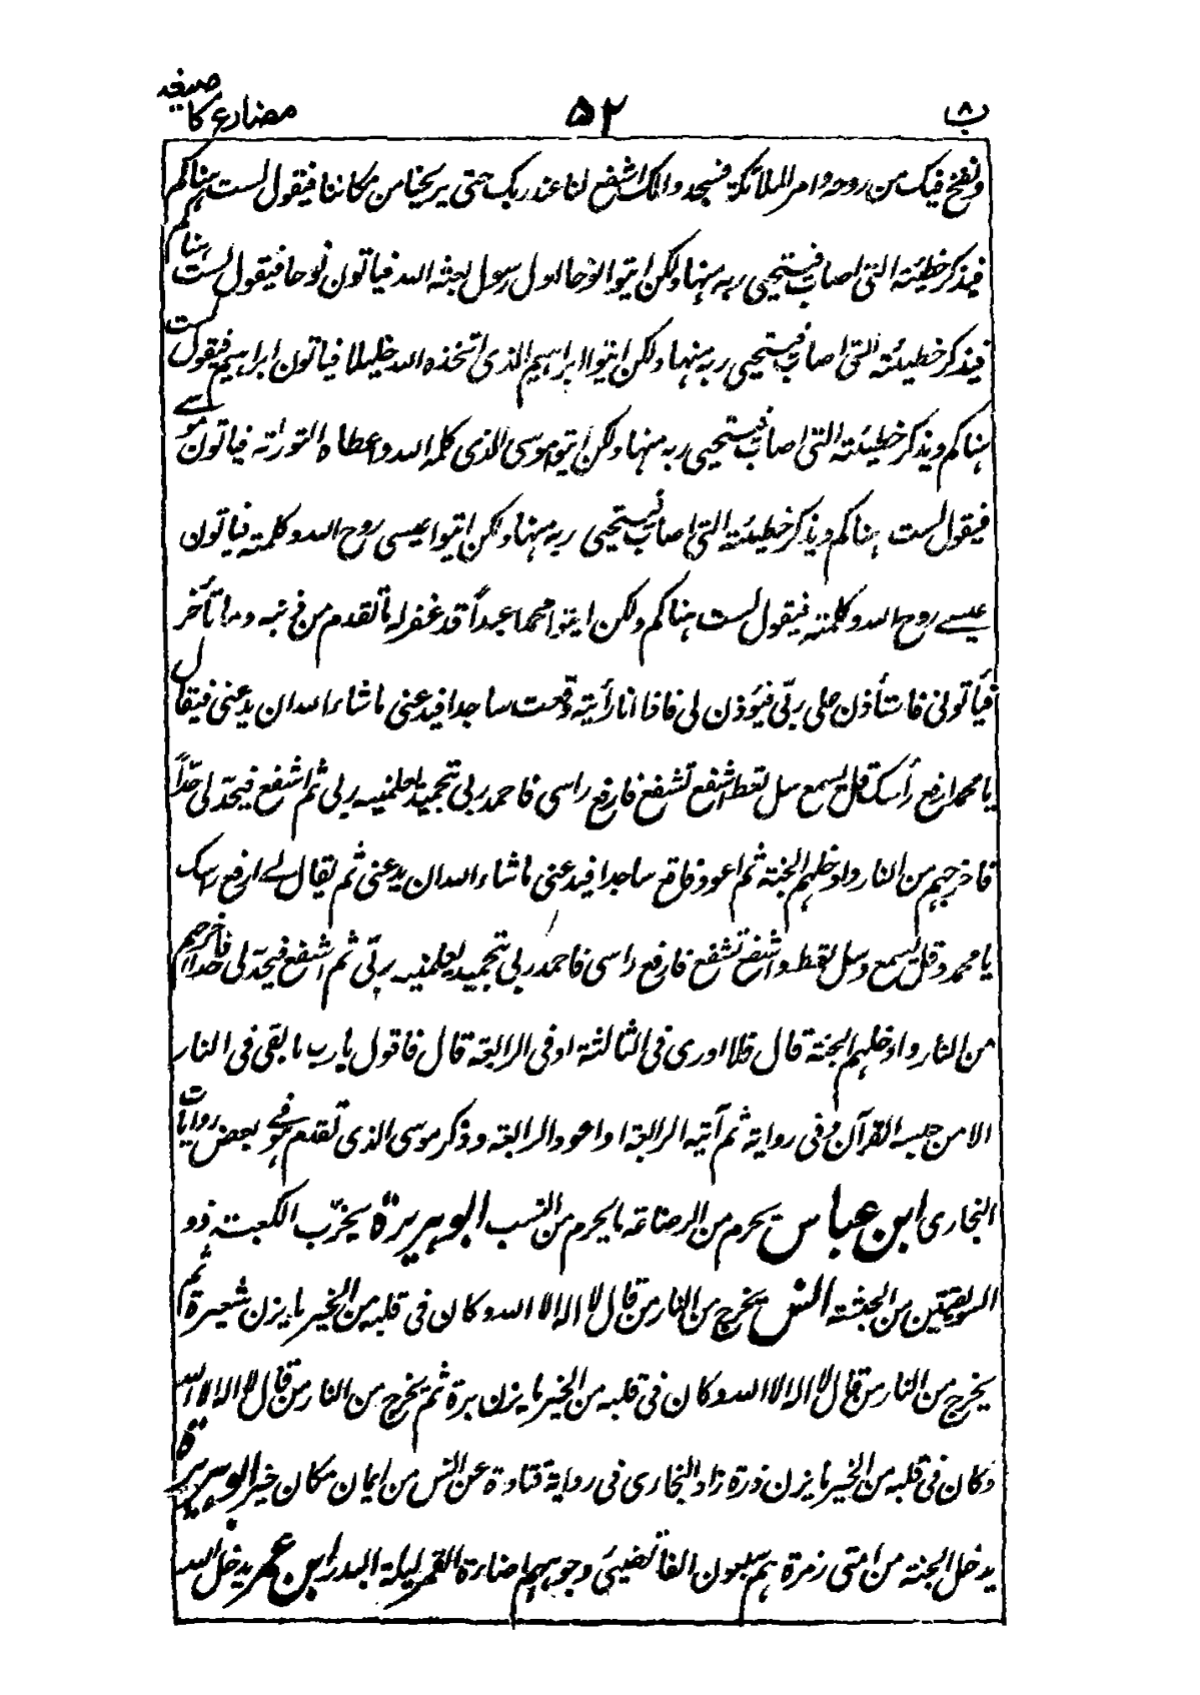 ب ۸
۵۲
مضارع کا صیغہ
ونفخ فیک من روحہ وامر الملائکۃ فسجدوا لک اشفع لنا عند ربک حتی یریحنا من مکاننا فیقول لست ہناکم
فیذکر خطیئتہ التی اصاب فیستحیی ربہ منہا ولکن ایتوا نوحا اول رسول بعثہ اللہ فیاتون نوحا فیقول لست ہناکم
فیذکر خطیئتہ التی اصاب فیستحیی ربہ منہا ولکن ایتوا ابراہیم الذی اتخذہ اللہ خلیلا فیاتون ابراہیم فیقول لست
ہناکم ویذکر خطیئتہ التی اصاب فیستحیی ربہ منہا ولکن ایتوا موسی الذی کلمہ اللہ واعطاہ التوراتہ فیاتون موسے
فیقول لست ہناکم ویذکر خطیئتہ التی اصاب فیستحیی ربہ منہا ولکن ایتوا عیسی روح اللہ وکلمتہ فیاتون
عیسے روح اللہ وکلمتہ فیقول لست ہناکم ولکن ایتوا محمدا عبداً قد غفرلہ ما تقدم من ذنبہ وما تأخر
فیأتونی فاستأذن علی ربّی فیؤذن لی فاذا انا رأیتہ وقعت ساجدا فیدعنی ما شاء اللہ ان یدعنی فیقال
یا محمد ارفع رأسک قل یسمع سل تعط اشفع تشفع فارفع راسی فاحمد ربی بتحمید یعلمنیہ ربی ثم اشفع فیحدّ لی حدّاً
فاخرجہم من النار وادخلہم الجنۃ ثم اعود فاقع ساجدا فیدعنی ما شاء اللہ ان یدعنی ثم یقال لے ارفع راسک
یا محمد وقل یسمع وسل تعط واشفع تشفع فارفع راسی فاحمد ربی بتحمید یعلمنیہ ربّی ثم اشفع فیحدّ لی حدا فاخرجہم
من النار وادخلہم الجنۃ قال فلا ادری فی الثالثۃ او فی الرابعۃ قال فاقول یا رب ما بقی فی النار
الا من حبسہ القرآن وفی روایۃ ثم آتیہ الرابعۃ او اعود الرابعۃ وذکر موسی الذی تقدم ہو فی بعض روایات
البخاری ابن عباس یحرم من الرضاعۃ ما یحرم من النسب ابوہریرۃ یخرّب الکعبتہ ذو
السویقتین من الحبشۃ انس یخرج من النار من قال لا الہ الا اللہ وکان فی قلبہ من الخیر ما یزن شعیرۃ ثم
یخرج من النار من قال لا الہ الا اللہ وکان فی قلبہ من الخیر ما یزن برۃ ثم یخرج من النار من قال لا الہ الا اللہ
وکان فی قلبہ من الخیر ما یزن ذرۃ زاد البخاری فی روایۃ قتادۃ عن انس من ایمان مکان خیر ابوہریرۃ
یدخل الجنۃ من امتی زمرۃ ہم سبعون الفا تضیئی وجوہہم اضاءۃ القمر لیلۃ البدر ابن عمر یدخل اللہ